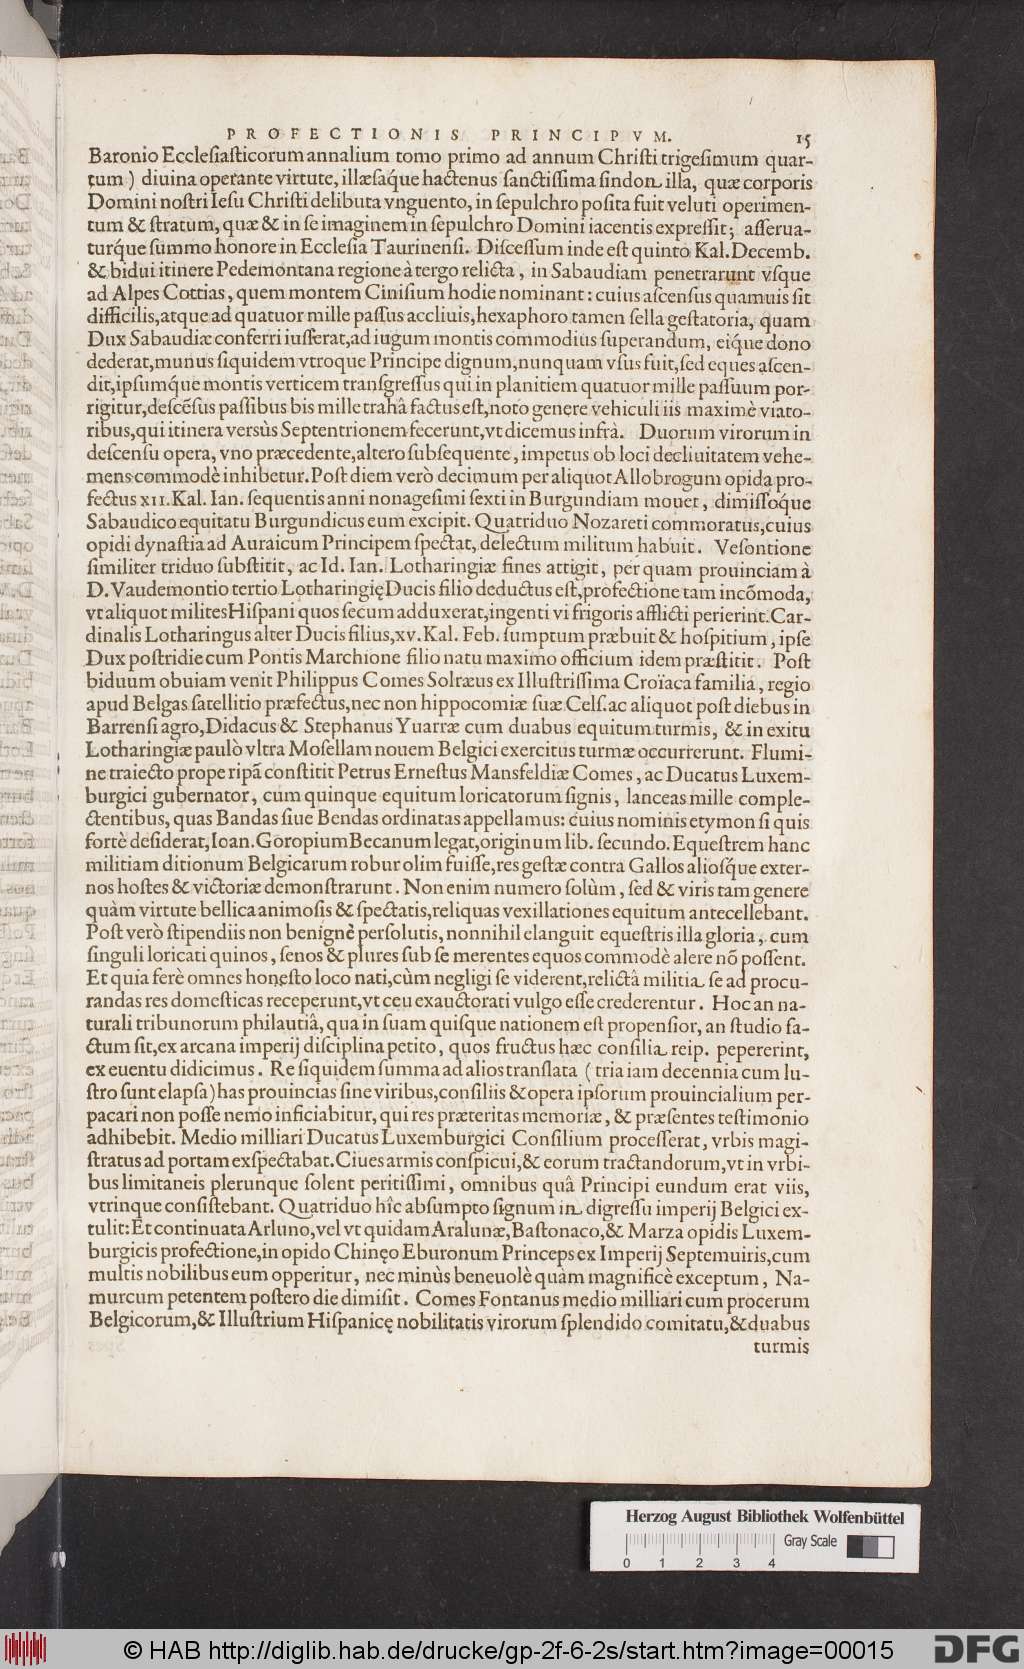 PROFECTIONIS PRINCIPVM. 15
Baronio Ecclesiasticorum annalium tomo primo ad annum Christi trigesimum quar-
tum) diuina operante virtute, illæsaq́ue hactenus sanctissima sindon illa, quæ corporis
Domini nostri Iesu Christi delibuta vnguento, in sepulchro posita fuit veluti operimen-
tum & stratum, quæ & in se imaginem in sepulchro Domini iacentis expressit; asserua-
turq́ue summo honore in Ecclesia Taurinensi. Discessum inde est quinto Kal. Decemb.
& bidui itinere Pedemontana regione à tergo relicta, in Sabaudiam penetrarunt vsque
ad Alpes Cottias, quem montem Cinisium hodie nominant: cuius ascensus quamuis sit
difficilis, atque ad quatuor mille passus accliuis, hexaphoro tamen sella gestatoria, quam
Dux Sabaudiæ conferri iusserat, ad iugum montis commodius superandum, eiq́ue dono
dederat, munus siquidem vtroque Principe dignum, nunquam vsus fuit, sed eques ascen-
dit, ipsumq́ue montis verticem transgressus qui in planitiem quatuor mille passuum por-
rigitur, descẽsus passibus bis mille trahâ factus est, noto genere vehiculi iis maximè viato-
ribus, qui itinera versùs Septentrionem fecerunt, vt dicemus infrà. Duorum virorum in
descensu opera, vno præcedente, altero subsequente, impetus ob loci decliuitatem vehe-
mens commodè inhibetur. Post diem verò decimum per aliquot Allobrogum opida pro-
fectus XII. Kal. Ian. sequentis anni nonagesimi sexti in Burgundiam mouet, dimissoq́ue
Sabaudico equitatu Burgundicus eum excipit. Quatriduo Nozareti commoratus, cuius
opidi dynastia ad Auraicum Principem spectat, delectum militum habuit. Vesontione
similiter triduo substitit, ac Id. Ian. Lotharingiæ fines attigit, per quam prouinciam à
D. Vaudemontio tertio Lotharingię Ducis filio deductus est, profectione tam incõmoda,
vt aliquot milites Hispani quos secum adduxerat, ingenti vi frigoris afflicti perierint. Car-
dinalis Lotharingus alter Ducis filius, XV. Kal. Feb. sumptum præbuit & hospitium, ipse
Dux postridie cum Pontis Marchione filio natu maximo officium idem præstitit. Post
biduum obuiam venit Philippus Comes Solræus ex Illustrissima Croïaca familia, regio
apud Belgas satellitio præfectus, nec non hippocomiæ suæ Cels. ac aliquot post diebus in
Barrensi agro, Didacus & Stephanus Yuarræ cum duabus equitum turmis, & in exitu
Lotharingiæ paulò vltra Mosellam nouem Belgici exercitus turmæ occurrerunt. Flumi-
ne traiecto prope ripã constitit Petrus Ernestus Mansfeldiæ Comes, ac Ducatus Luxem-
burgici gubernator, cum quinque equitum loricatorum signis, lanceas mille comple-
ctentibus, quas Bandas siue Bendas ordinatas appellamus: cuius nominis etymon si quis
fortè desiderat, Ioan. Goropium Becanum legat, originum lib. secundo. Equestrem hanc
militiam ditionum Belgicarum robur olim fuisse, res gestæ contra Gallos aliosq́ue exter-
nos hostes & victoriæ demonstrarunt. Non enim numero solùm, sed & viris tam genere
quàm virtute bellica animosis & spectatis, reliquas vexillationes equitum antecellebant.
Post verò stipendiis non benignè persolutis, nonnihil elanguit equestris illa gloria, cum
singuli loricati quinos, senos & plures sub se merentes equos commodè alere nõ possent.
Et quia ferè omnes honesto loco nati, cùm negligi se viderent, relictâ militia se ad procu-
randas res domesticas receperunt, vt ceu exauctorati vulgo esse crederentur. Hoc an na-
turali tribunorum philautiâ, qua in suam quisque nationem est propensior, an studio fa-
ctum sit, ex arcana imperij disciplina petito, quos fructus hæc consilia reip. pepererint,
ex euentu didicimus. Re siquidem summa ad alios translata (tria iam decennia cum lu-
stro sunt elapsa) has prouincias sine viribus, consiliis & opera ipsorum prouincialium per-
pacari non posse nemo inficiabitur, qui res præteritas memoriæ, & præsentes testimonio
adhibebit. Medio milliari Ducatus Luxemburgici Consilium processerat, vrbis magi-
stratus ad portam exspectabat. Ciues armis conspicui, & eorum tractandorum, vt in vrbi-
bus limitaneis plerunque solent peritissimi, omnibus quâ Principi eundum erat viis,
vtrinque consistebant. Quatriduo hîc absumpto signum in digressu imperij Belgici ex-
tulit: Et continuata Arluno, vel vt quidam Aralunæ, Bastonaco, & Marza opidis Luxem-
burgicis profectione, in opido Chinęo Eburonum Princeps ex Imperij Septemuiris, cum
multis nobilibus eum opperitur, nec minùs beneuolè quàm magnificè exceptum, Na-
murcum petentem postero die dimisit. Comes Fontanus medio milliari cum procerum
Belgicorum, & Illustrium Hispanicę nobilitatis virorum splendido comitatu, & duabus
turmis
Herzog August Bibliothek Wolfenbüttel
Gray Scale
0 1 2 3 4
© HAB http://diglib.hab.de/drucke/gp-2f-6-2s/start.htm?image=00015 DFG